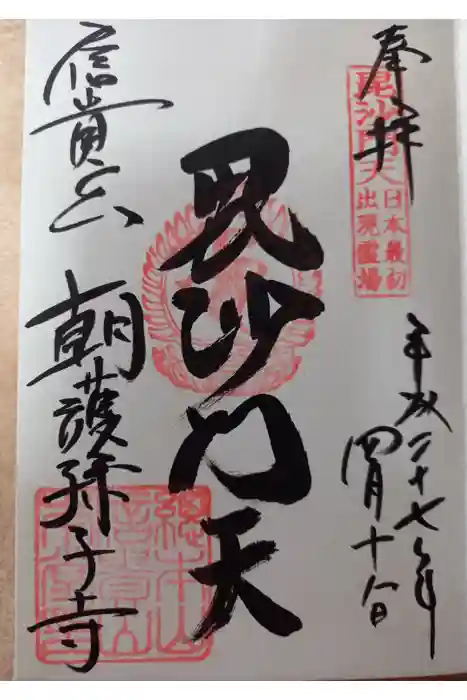 奉拝
毘沙門天
日本最初
出現霊場
平成二十七年
四月十八日
毘沙門天
信貴山
朝護孫子寺